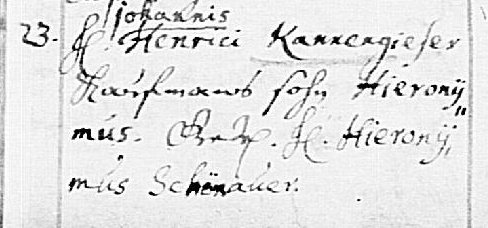 Johannis
23. H. Henrici Kannengieser
Kaufmans sohn Hierony„
mus. H. Hierony„
mus Schönauer.